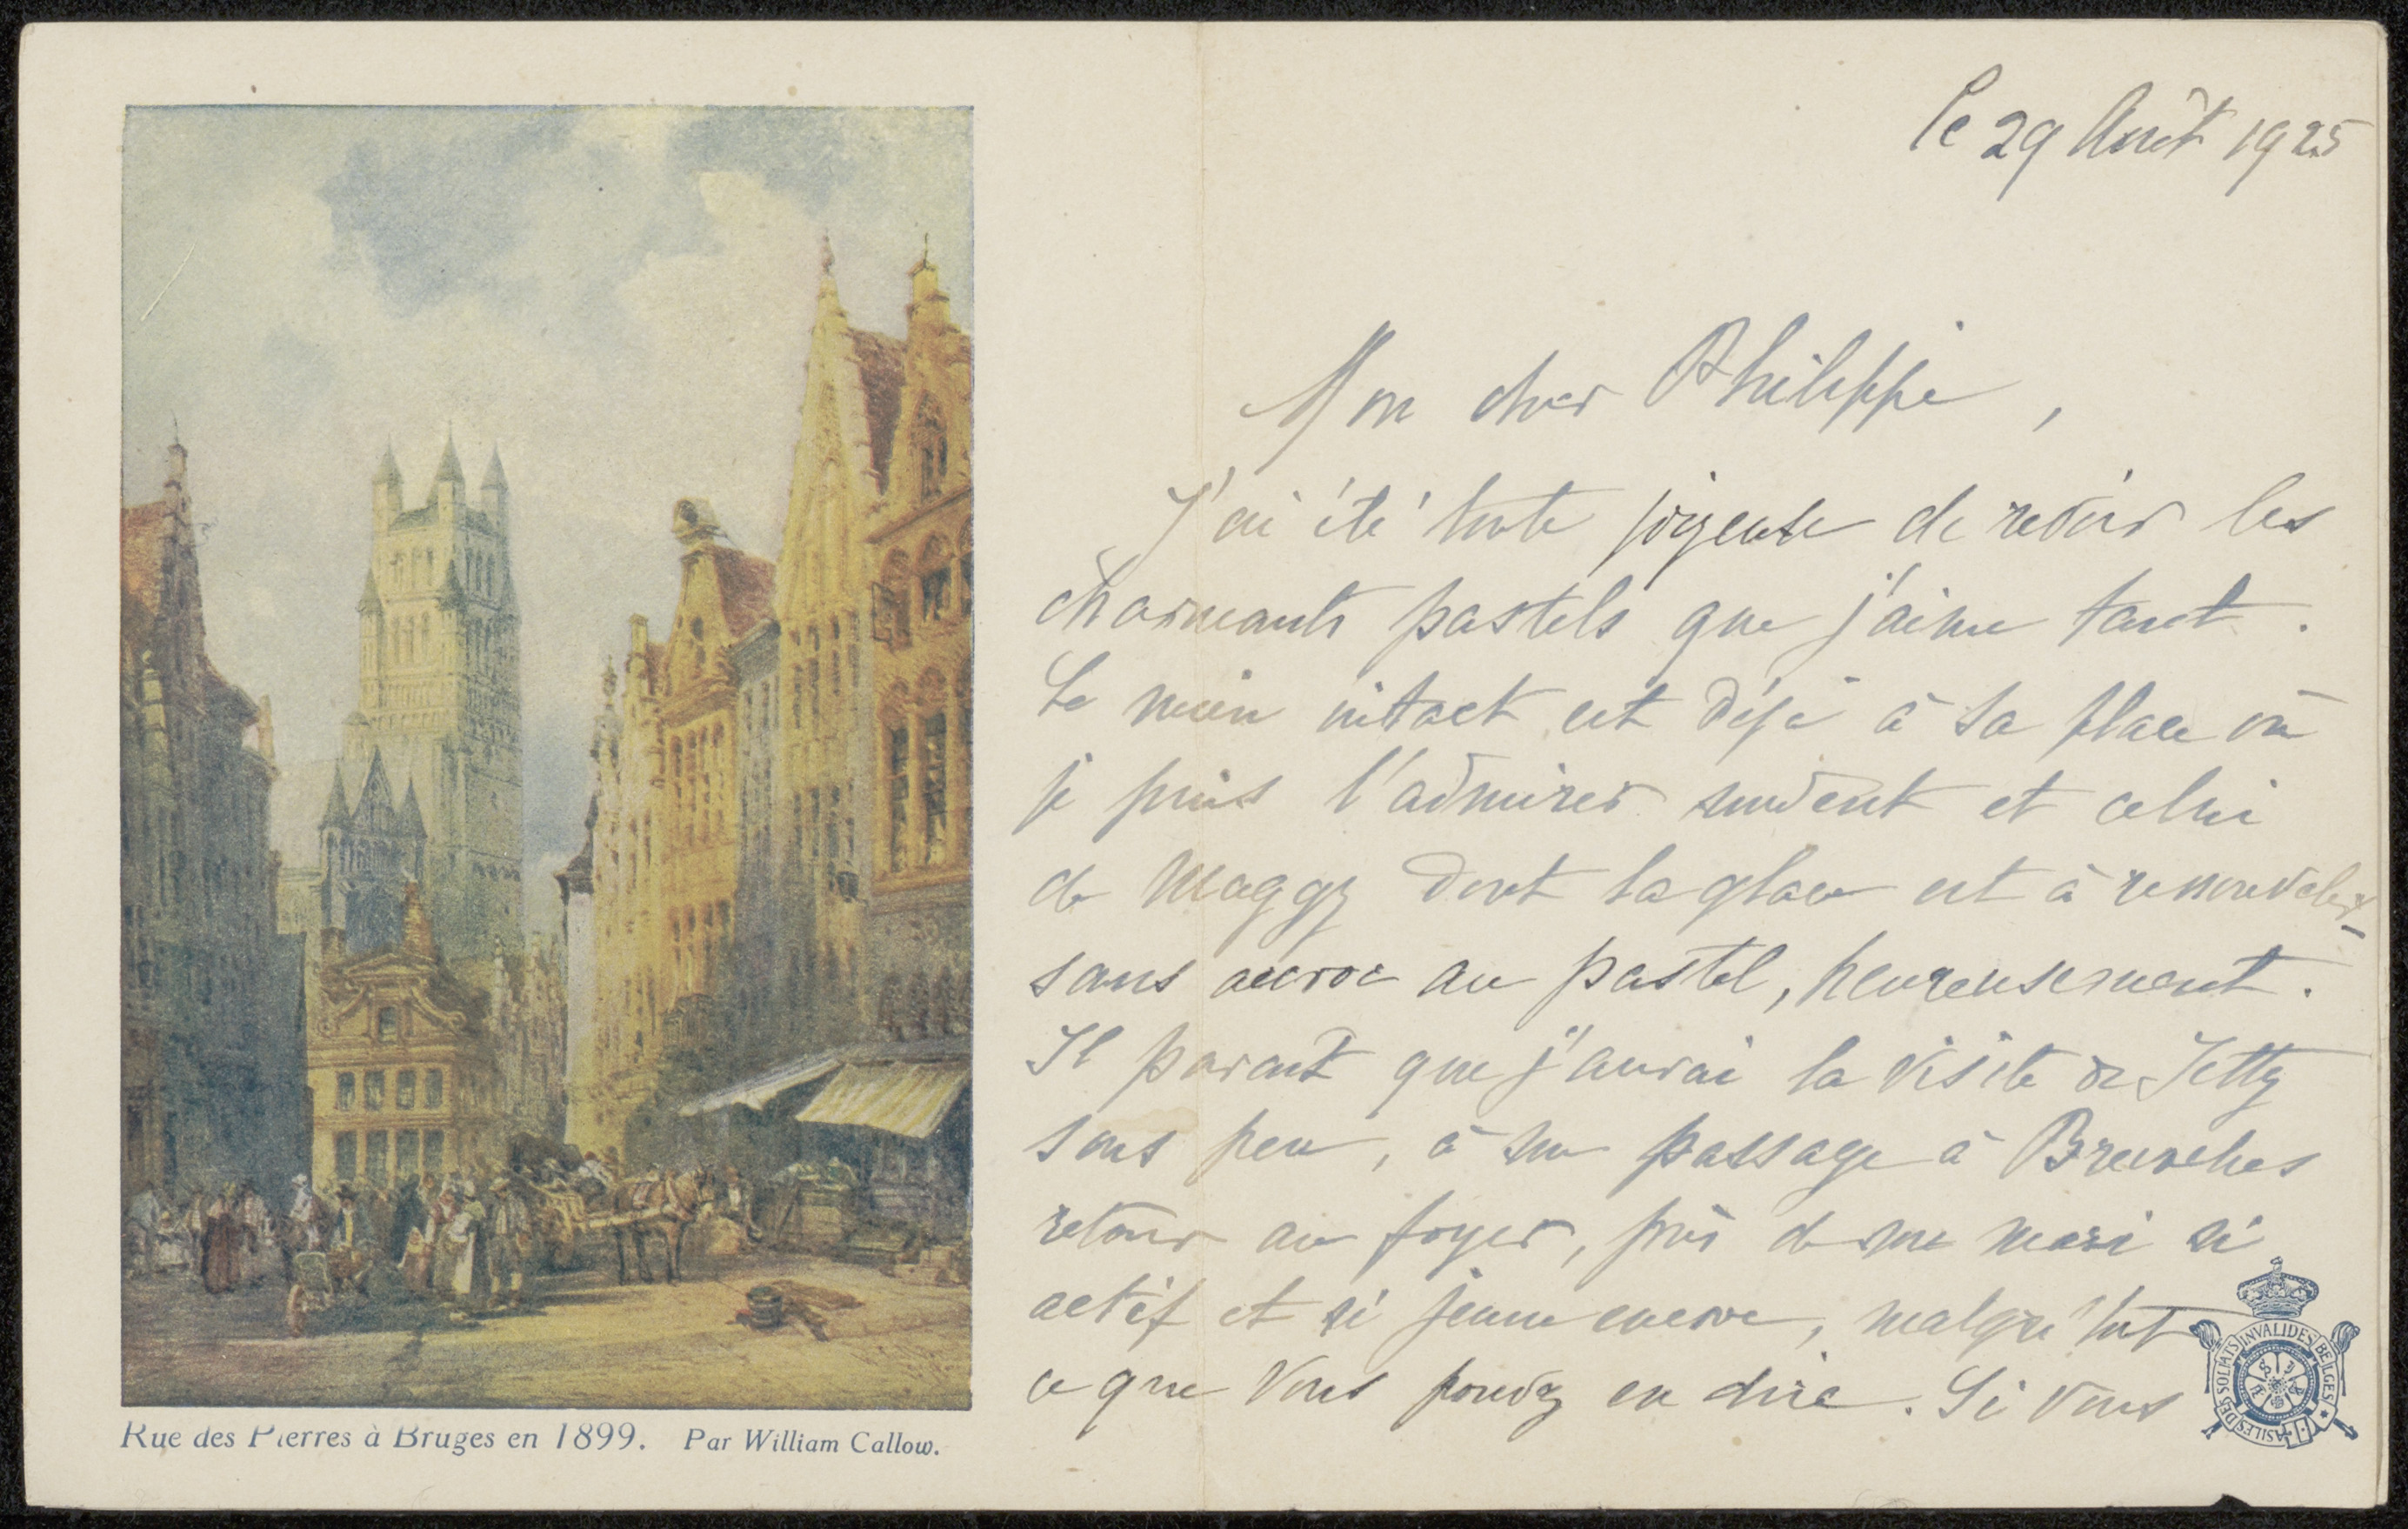 Rue des Pierres à Bruges en 1899. Par William Callow.
le 29 Août 1925
Mon cher Philippe,
J'ai été toute joyeuse de revoir les
charmants pastels que j'aime tant.
Le mien intact est déjà à sa place où
je puis l'admirer souvent et celui
de Maggy dont la glace est à renouveler -
sans accroc au pastel, heureusement.
Il parait que j'aurai la visite de Jetty
sous peu, à son passage à Bruxelles
retour au foyer, près de son mari si
actif et si jeune encore, malgré tout
ce que vous pouvez en dire. Si vous
ASILES DES SOLDATS INVALIDES BELGES